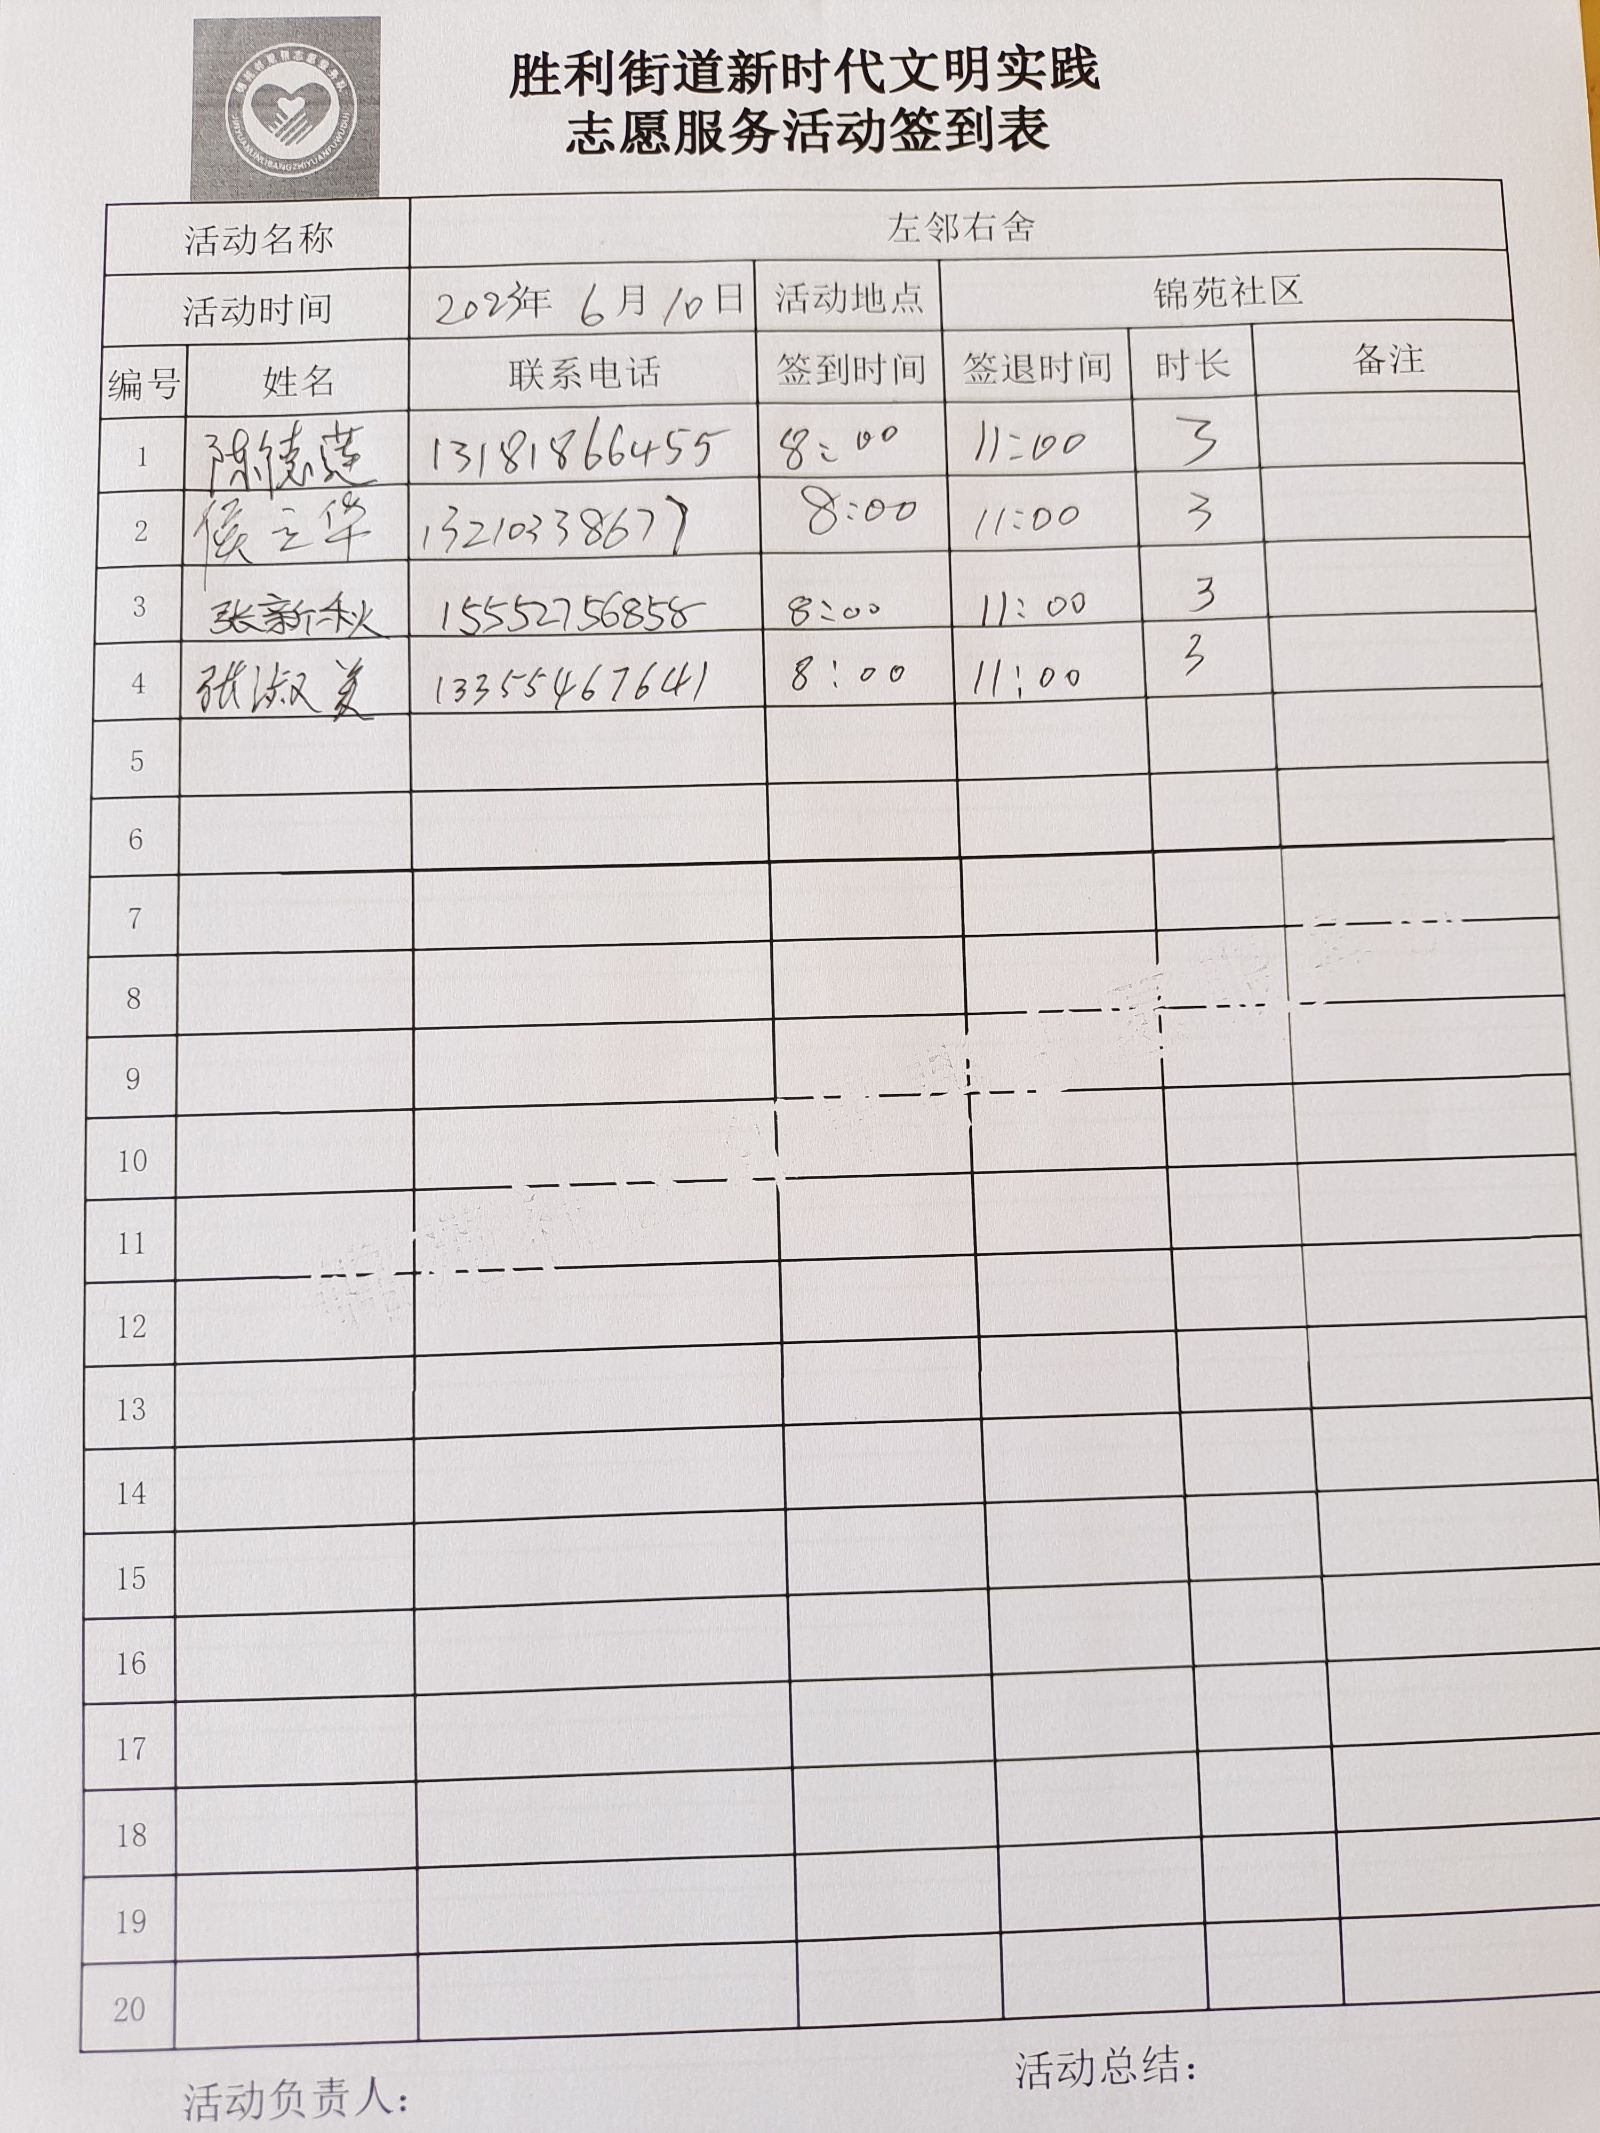 胜利街道新时代文明实践
志愿服务活动签到表
活动名称 左邻右舍
活动时间 2023年 6月10日 活动地点 锦苑社区
编号 姓名 联系电话 签到时间 签退时间 时长 备注
1 陈德莲 13181866455 8:00 11:00 3
2 侯立华 13210338677 8:00 11:00 3
3 张新秋 15552756858 8:00 11:00 3
4 张淑美 13355467641 8:00 11:00 3
5
6
7
8
9
10
11
12
13
14
15
16
17
18
19
20
活动负责人： 活动总结：